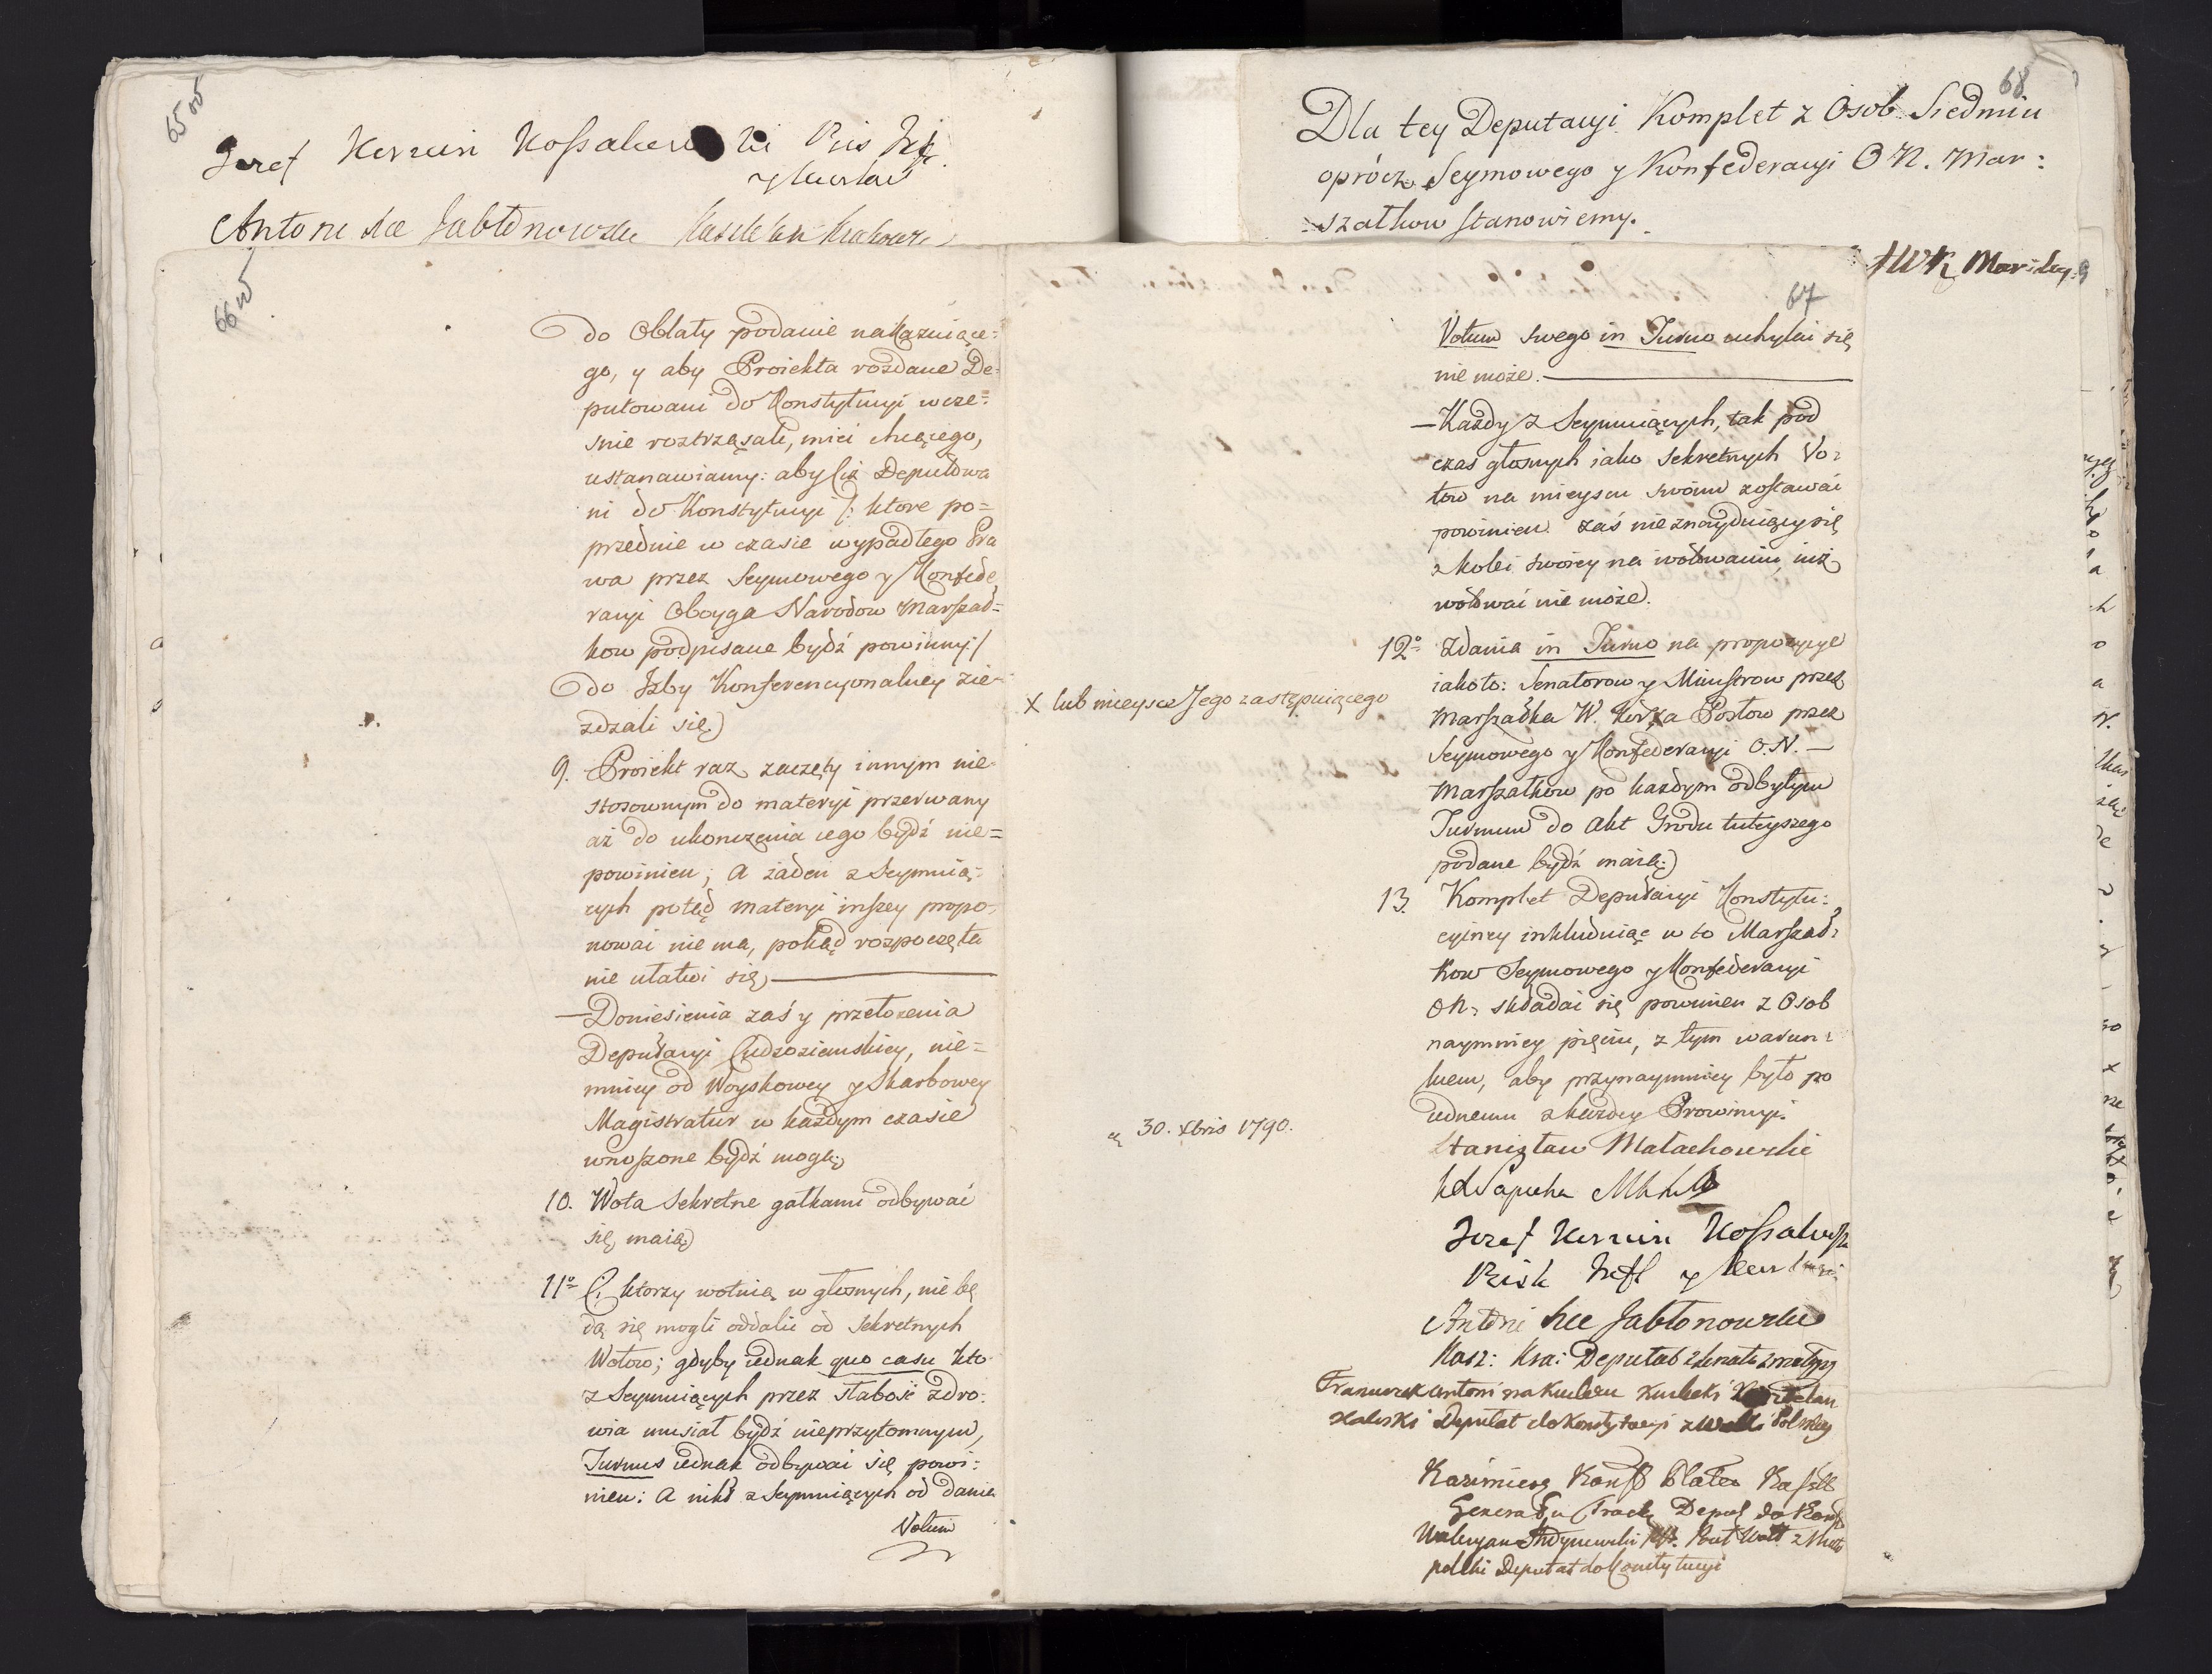 65v
Jozef Korwin Kossakowski Bis Infl
y Kurlan
Antoni Xże Jabłonowski Kasztelan Krakow
68
Dla tey Deputacyi Komplet z Osob Siedmiu
oprócz Seymowego y Konfederacyi O N. Mar:
szałkow stanowiemy.
66v
do Oblaty podanie nakazuiące:
go, y aby Proiekta rozdane De:
putowani do Konstytucyi wcze:
snie roztrząsali, mieć chcącego,
ustanawiamy: aby ciż Deputowa
ni do Konstytucyi /: ktore po=
przednie w czasie wypadłego Pra
wa przez Seymowego y Konfede
racyi Oboyga Narodow Marszał=
kow podpisane bydź powinny:/
do Izby Konferencyonalney zie:
zdzali się
9. Proiekt raz zaczęty innym nie
stosownym do materyi przerwany
aż do ukonczenia iego bydź nie=
powinien; A żaden z Seymuią:
cych potąd materyi inszey propo:
nować nie ma, pokąd rozpoczęta
nie ułatwi się
— Doniesienia zaś y przełożenia
Deputacyi Cudzoziemskiey, nie=
mniey od Woyskowey y Skarbowey
Magistratur w każdym czasie
wnoszone bydź mogą
10. Wota Sekretne gałkami odbywać
się maią
11o Ci ktorzy wotuią w głosnych, nie bę
dą się mogli oddalić od Sekretnych
Wotow; gdyby iednak quo casu kto
z Seymuiących przez słabość zdro:
wia musiał bydź nieprzytomnym,
Turnus iednak odbywać się powi:
nien: A nikt z Seymuiących od dania
Votum
67
Votum swego in Turno uchylać się
nie może.
— Każdy z Seymuiących, tak pod
czas głosnych iako Sekretnych Vo:
tow na mieyscu swoim zostawać
powinien. zaś nieznayduiący się
z kolei swoiey na wotowaniu, iuż
wotować nie może.
12o Zdania in Turno na propozycye
iako to: Senatorow y Ministrow przez
Marszałka W. Kor. X a Posłow przez
X lub mieysce Jego zastępuiącego
Seymowego y Konfederacyi O. N. —
Marszałkow po każdym odbytym
Turnum do Akt Grodu tuteyszego
podane bydź maią
13. Komplet Deputacyi Konstytu:
cyiney inkluduiąc w to Marszał:
kow Seymowego y Konfederacyi
ON: składać się powinien z Osob
naymniey pięciu, z tym warun:
kiem, aby przynaymniey było po
iednemu z każdey Prowincyi.
30. Xbris 1790.
Stanisław Małachowski
Sapieha
Jozef Korwin Kossakowski
Bisk Infl y Kurl
Antoni Xże Jabłonowski
Kasz: Kra: Deputat z Senatu z małop
Franciszek Antoni na Kwilczu Kwilecki Kasztelan
Kaliski Deputat do Konstytucyi z Wielki Polskiey
Kazimierz Konst Plater Kaszt
Generału Trock Deput do Konst
Waleryan Stroynowski Pos. Wołł z Mało
polski Deputat do Konstytucyi